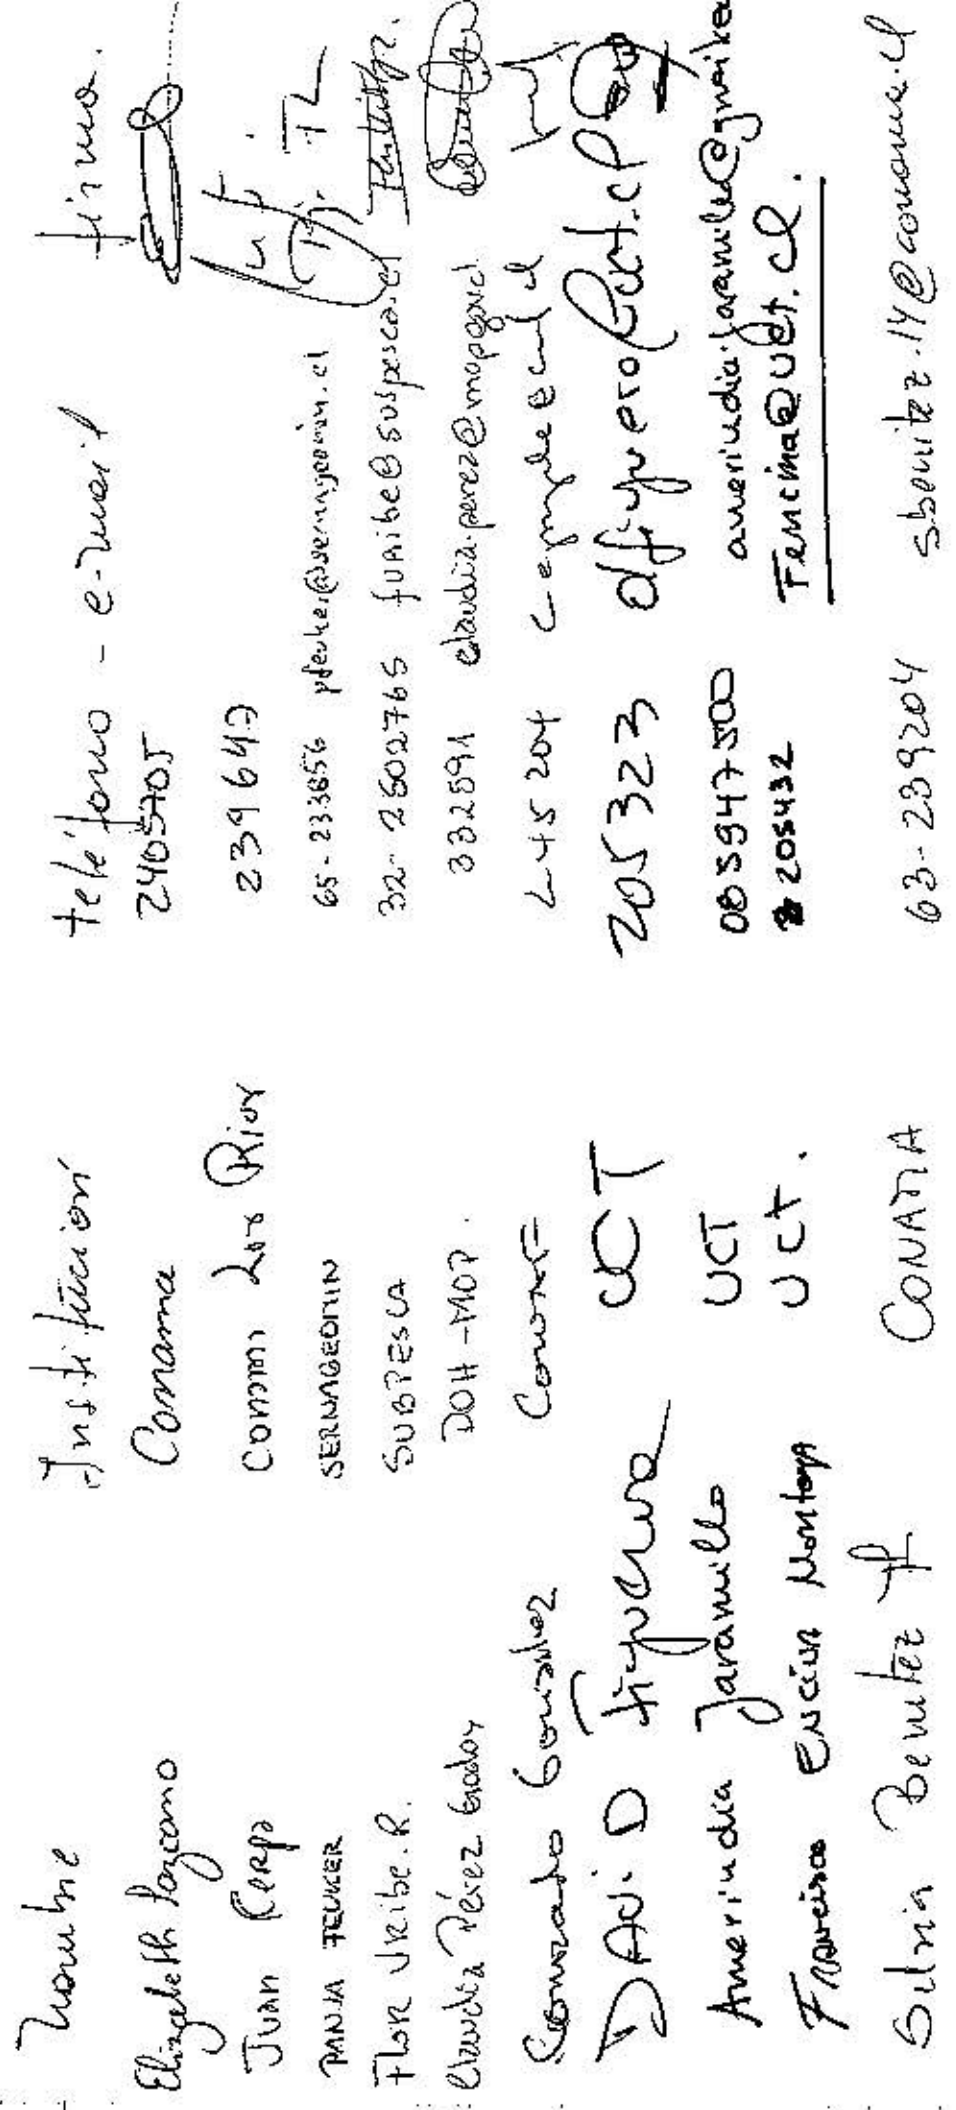 Nombre Institución teléfono - e-mail firma.
Elizabeth Lazcano Conama 2405705
Juan Cerpa Conama Los Rios 239647
PANJA FEUKER SERNAGEOMIN 65-233656
Flor Uribe. R. SUBPESCA 32-2502765 furibe@subpesca.cl
Claudia Pérez Godoy DOH-MOP. 332591 claudia.perez@mop.gov.cl
González Conaf 245204
DAVID Figueroa UCT 205323 dfiguero@uct.cl
Amerindia Jaramillo UCT 08 5947500 amerindia.jaramillo@gmail.com
Francisco Encina Montoya UCT. 205432 Fencina@uct.cl.
Silvia Benitez F CONAMA 63-239204 sbenitez.14@conama.cl